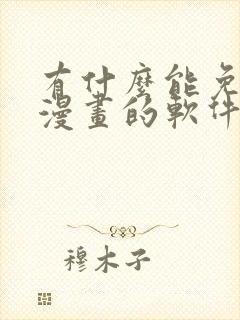 有什麼能免
漫畫的軟件
穆木子